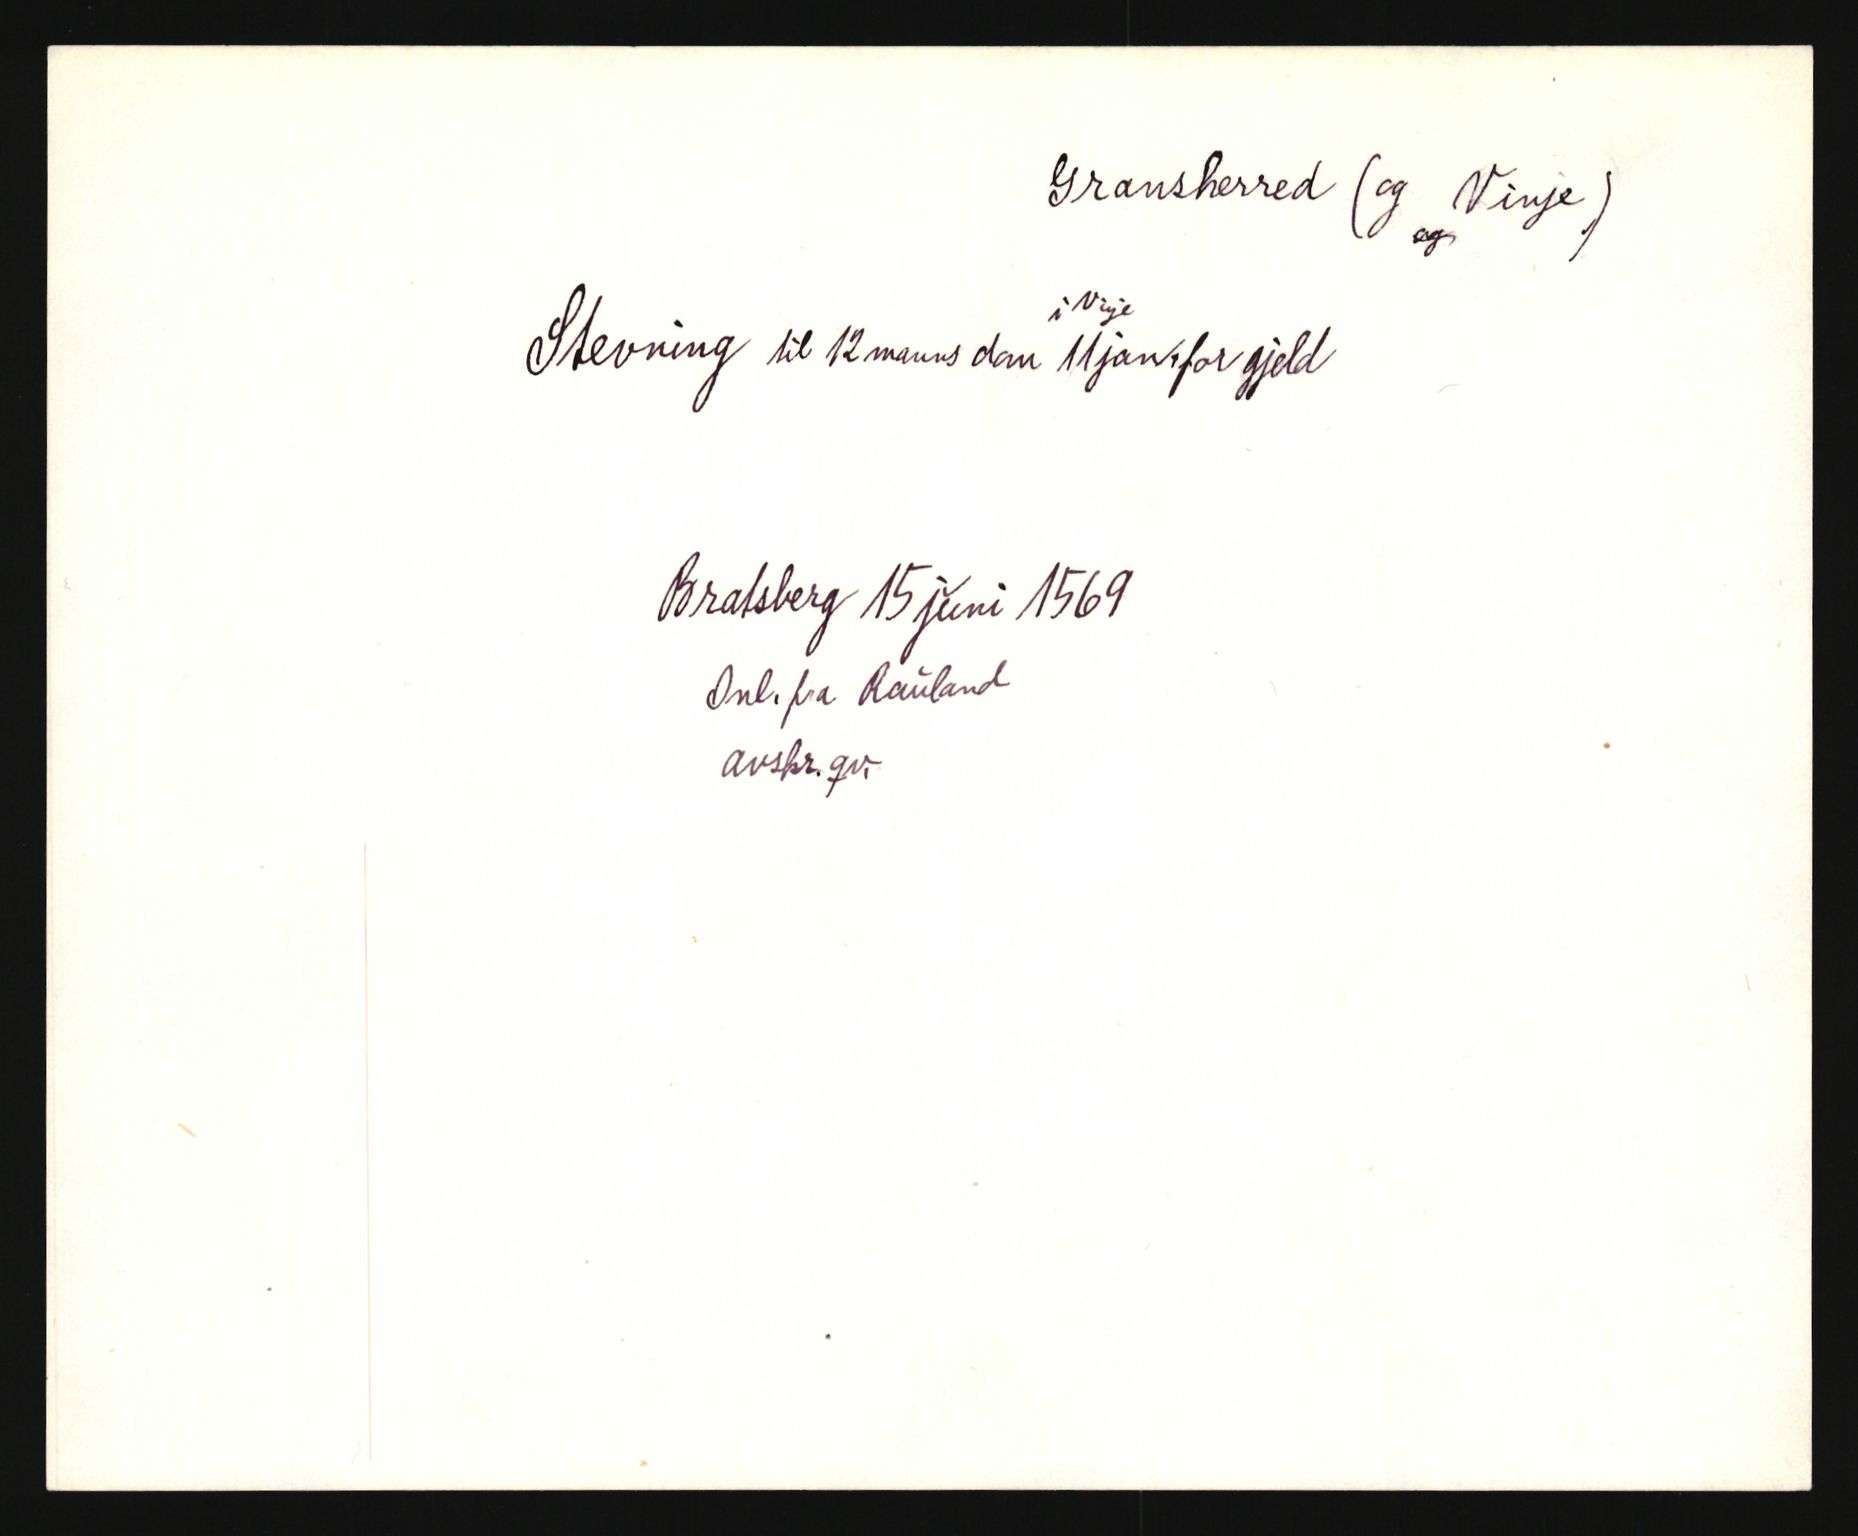 Gransherred (og Vinje)
og
i Vinje
Stevning til 12 manns dom 11 jan. for gjeld
Bratsberg 15 juni 1569
Inl. fra Rauland
avskr. gv.